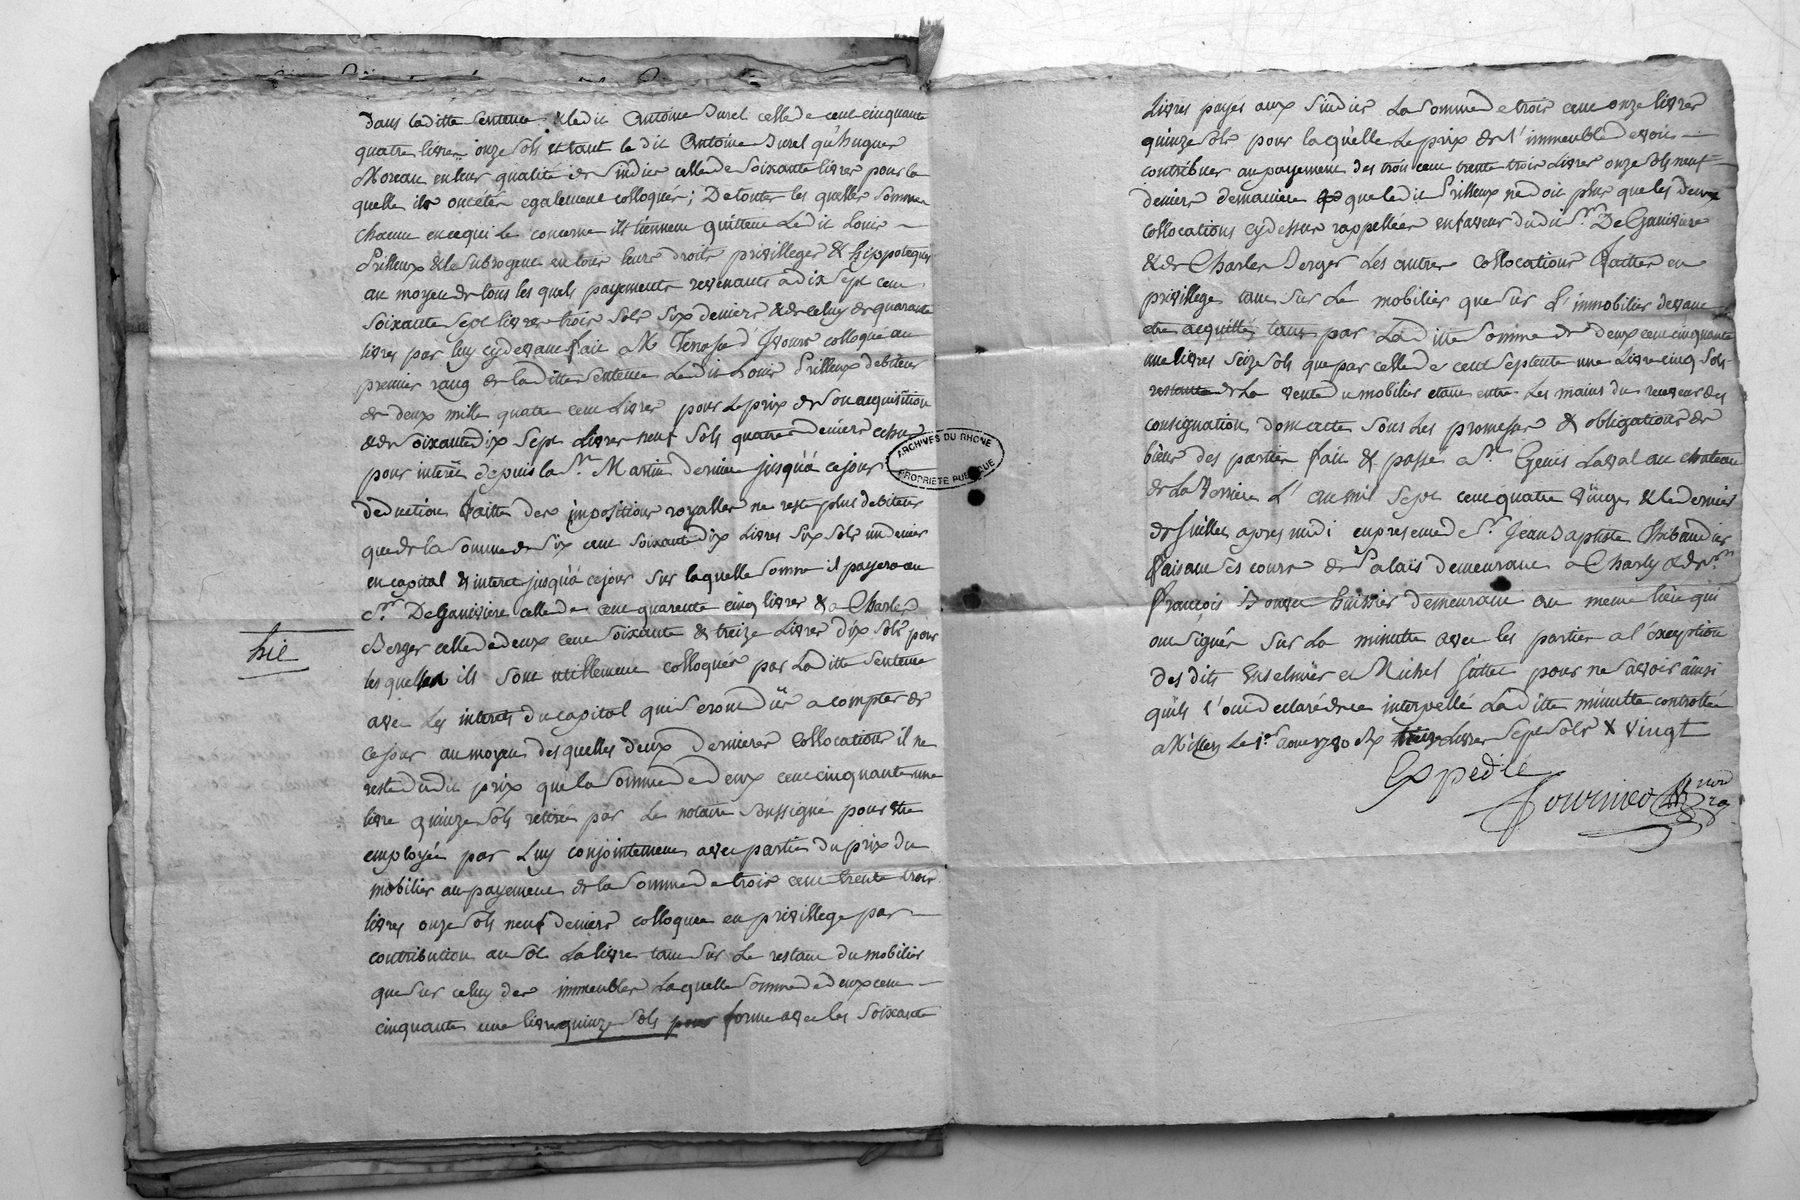 dans laditte sentence & ledit Antoine Durel celle de cent cinquante
quatre livres onze sols et tant le dit Antoine Durel qu'hugues
Moreau en leur qualité de sindics celle de soixante livres pour la
quelle ils ont étés egalement colloqués; De toutes les quelles sommes
chacun en ce qui le concerne ils tiennent quittent Ledit Louis
Prilleux & le subrogent en tous leurs droits privilleges & hippoteques
au moyen de tous les quels payements revenants a dix sept cent
soixante sept livres trois sols six deniers & de celuy de quarante
livres par luy cydevant fait a M colloqué au
premier rang de laditte sentence Ledit Louis Prilleux debiteur
de deux mille quatre cent Livres pour Le prix de son acquisition
& de soixante dix sept Livres neuf sols quatres deniers echus
pour interêt depuis la St. Martin dernier jusqu'à ce jour
deduction faitte des impositions royalles ne reste plus debiteur
que de la somme de six cent soixante dix Livres six sols un denier
en capital & interet jusqu'à ce jour sur laquelle somme il payera au
Sr. De Ganiviere celle de cent quarente cinq livres & a Charles
Berger celle de deux cent soixante & treize Livres dix sols pour
lesquelles ils sont utillement colloqués par Laditte sentence
hic
avec Les interets du capital qui seront dûs a compter de
ce jour au moyen desquelles deux Dernieres Collocations il ne
reste dudit prix que la somme de deux cent cinquante une
livre quinze sols retirée par Le notaire soussigné pour etre
employée par Luy conjointement avec partie du prix du
mobilier au payement de la somme de trois cent trente trois
livres onze sols neuf deniers colloquée en privillege par
contribution au sol La livre tant sur Le restant du mobilier
que sur celuy des immeubles Laquelle somme de deux cent
cinquante une livre quinze sols pour forme avec les soixante
ARCHIVES DU RHONE
PROPRIETE PUBLIQUE
Livres payés aux sindics La somme de trois cent onze livres
quinze sols pour laquelle Le prix de l'immeuble devoit
contribuer au payement des trois cent trente trois Livres onze sols neuf
deniers de maniere que ledit Prilleux ne doit plus que les deux
collocations cydessus rappellées en faveur dudit Sr. De Ganiviere
& de Charles Berger Les autres collocations faittes en
privillege tant sur Le mobilier que sur L'immobilier devant
etre acquittés tant par Laditte somme de deux cent cinquante
une livres seize sols que par celle de cent septente une Livre cinq sols
restante de La vente du mobilier etant entre Les mains du receveur des
consignations dont acte sous Les promesses & obligations de
biens des parties fait & passé a St. Genis Laval au chateau
de La L'an mil sept cent quatre vingt & le dernier
de Juillet apres midi en presence de Sr. Jean Baptiste Thibaudier
faisant ses cours de Palais demeurant a Charly & de Sr.
François Bonvet huissier demeurant au meme lieu qui
ont signés sur La minutte avec les parties a l'exeption
des dits et Michel Juttet pour ne savoir ainsi
qu'ils l'ont declaré de ce interpellé Laditte minutte controllée
a Millery Le 1er. aout 1780 treize Livres sept sols X vingt
Expedié
Fournier